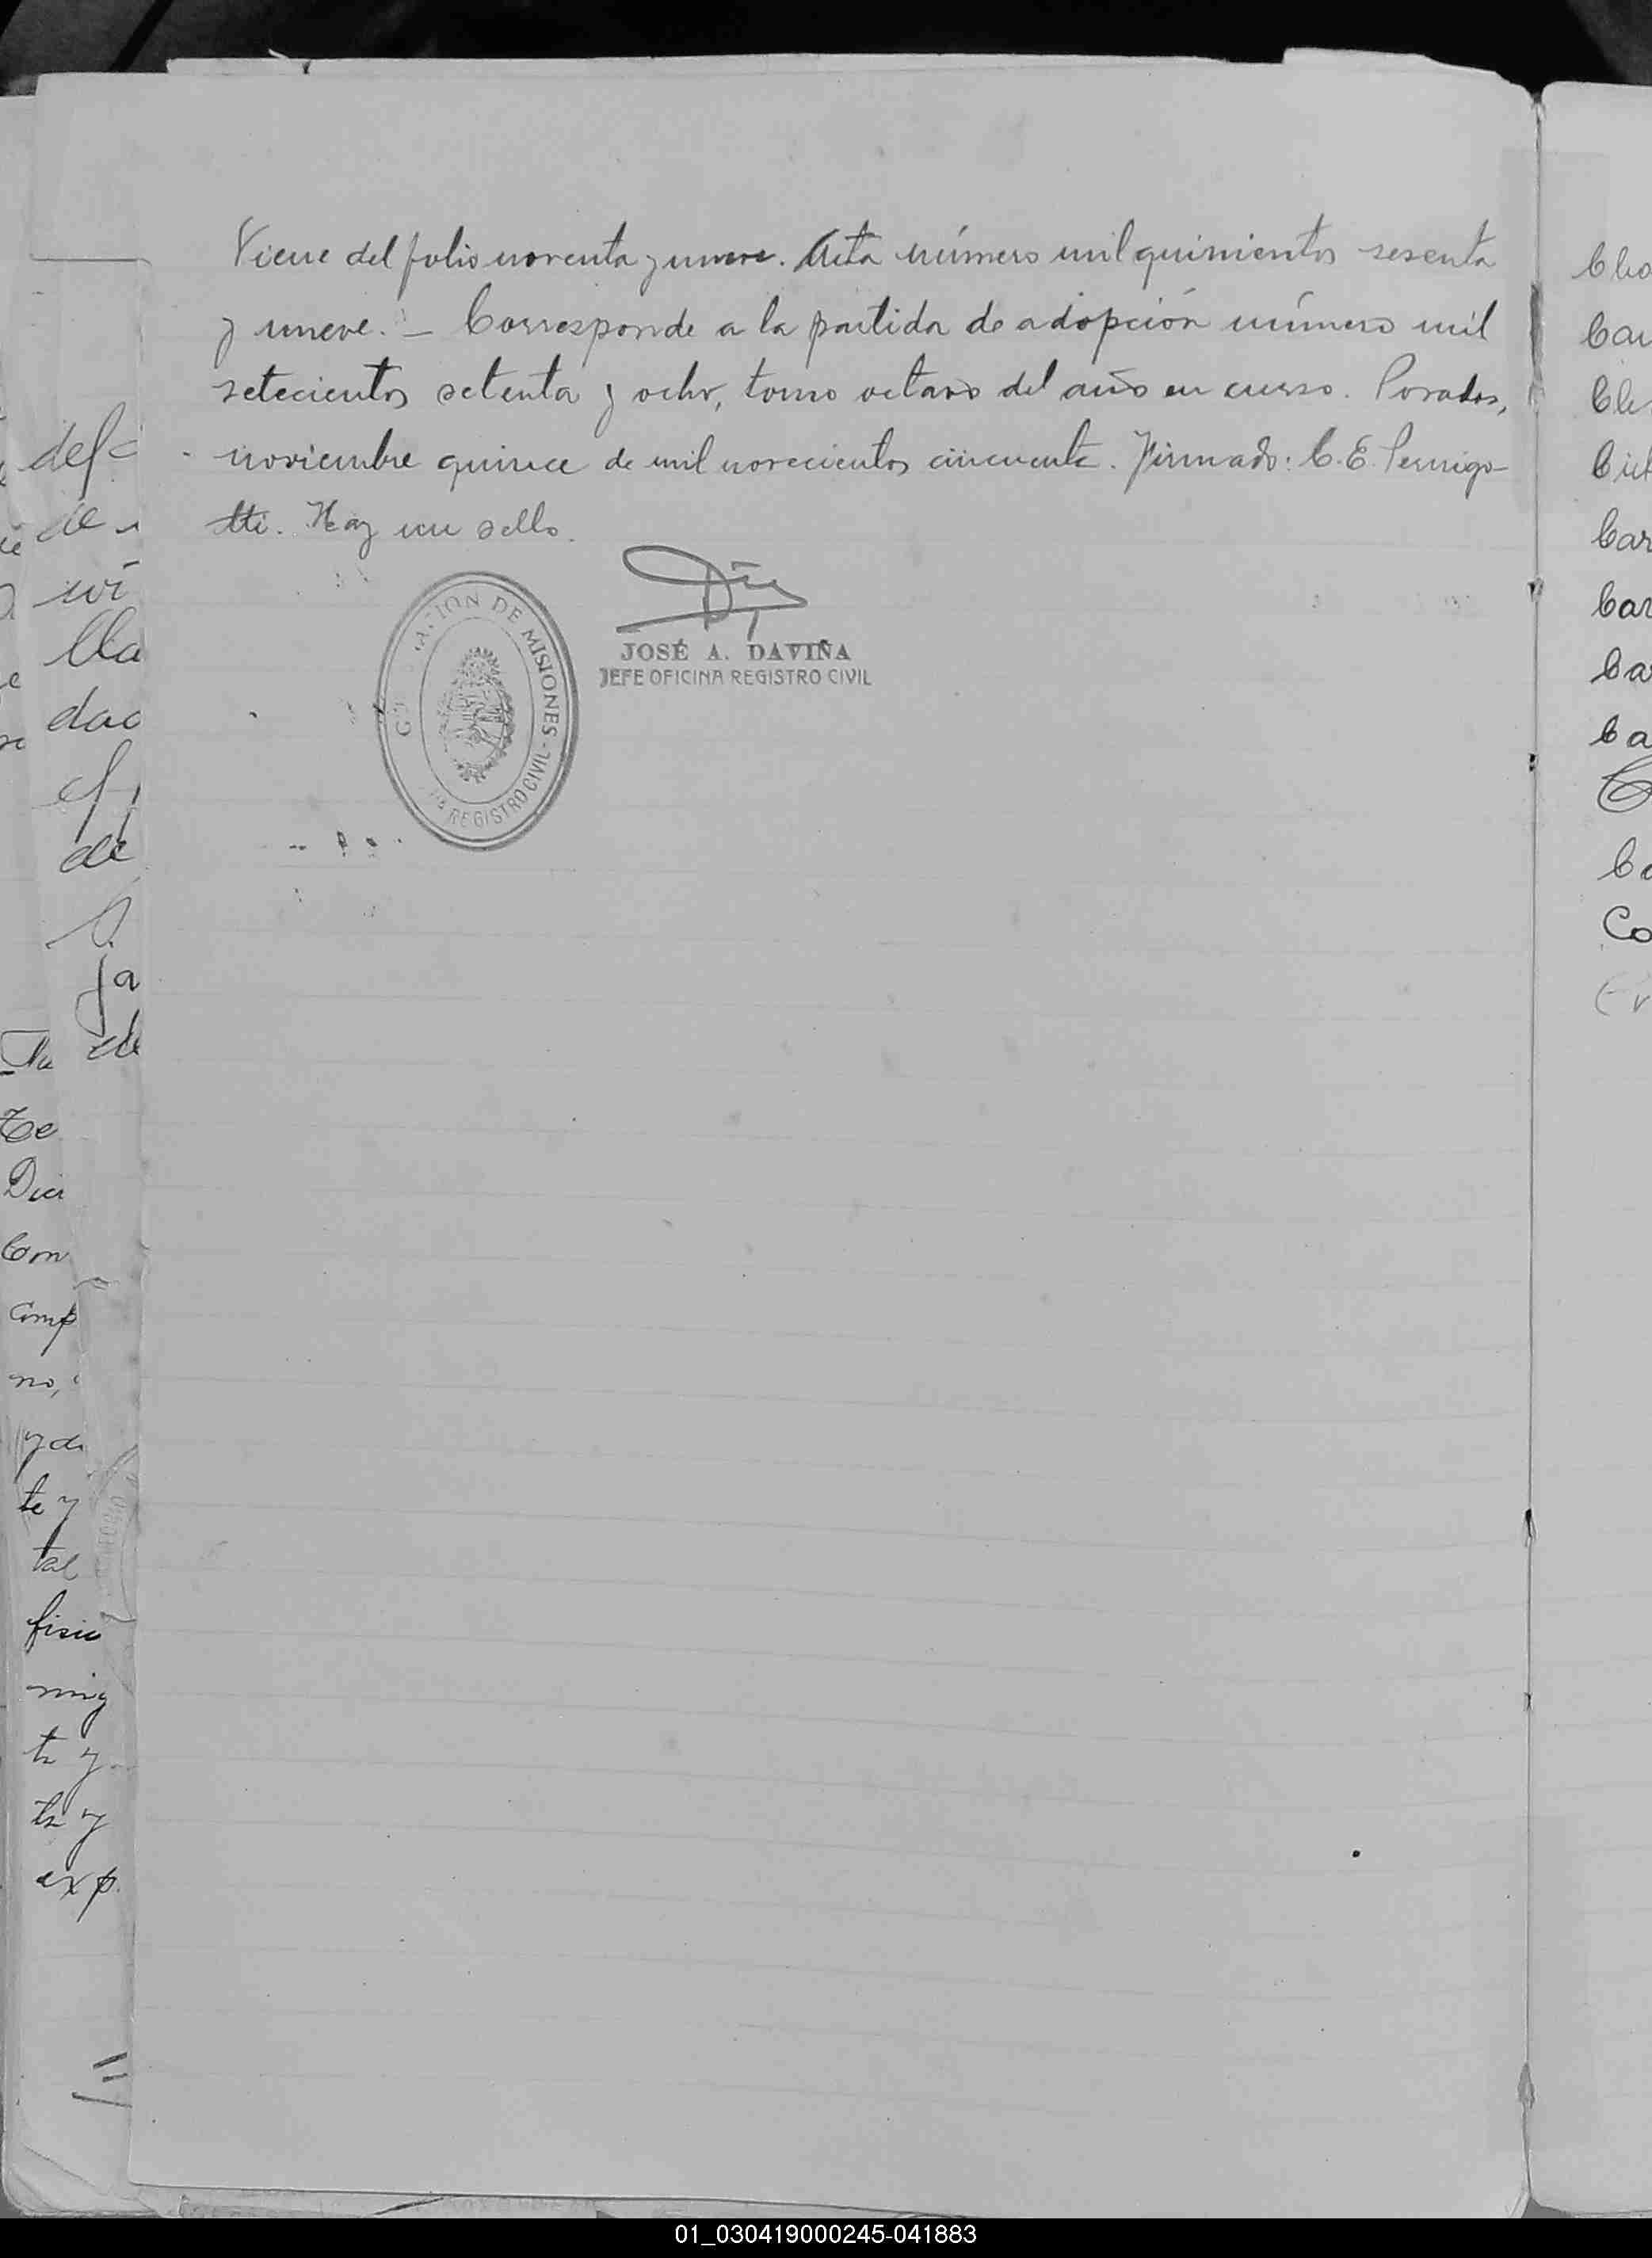 Viene del folio noventa y nueve. Acta número mil quinientos sesenta
y nueve. – Corresponde a la partida de adopción número mil
setecientos setenta y ocho, tomo octavo del año en curso. Posadas,
noviembre quince de mil novecientos cincuenta. Firmado: C. E. Pernigo-
tti. Hay un sello.
DE MISIONES - REGISTRO CIVIL -
JOSÉ A. DAVIÑA
JEFE OFICINA REGISTRO CIVIL
def
de
lla
dac
de
ja
de
Te
Com
Comp
no,
te y
tal
ning
ta y
ta y
exp.
Co
01_030419000245-041883